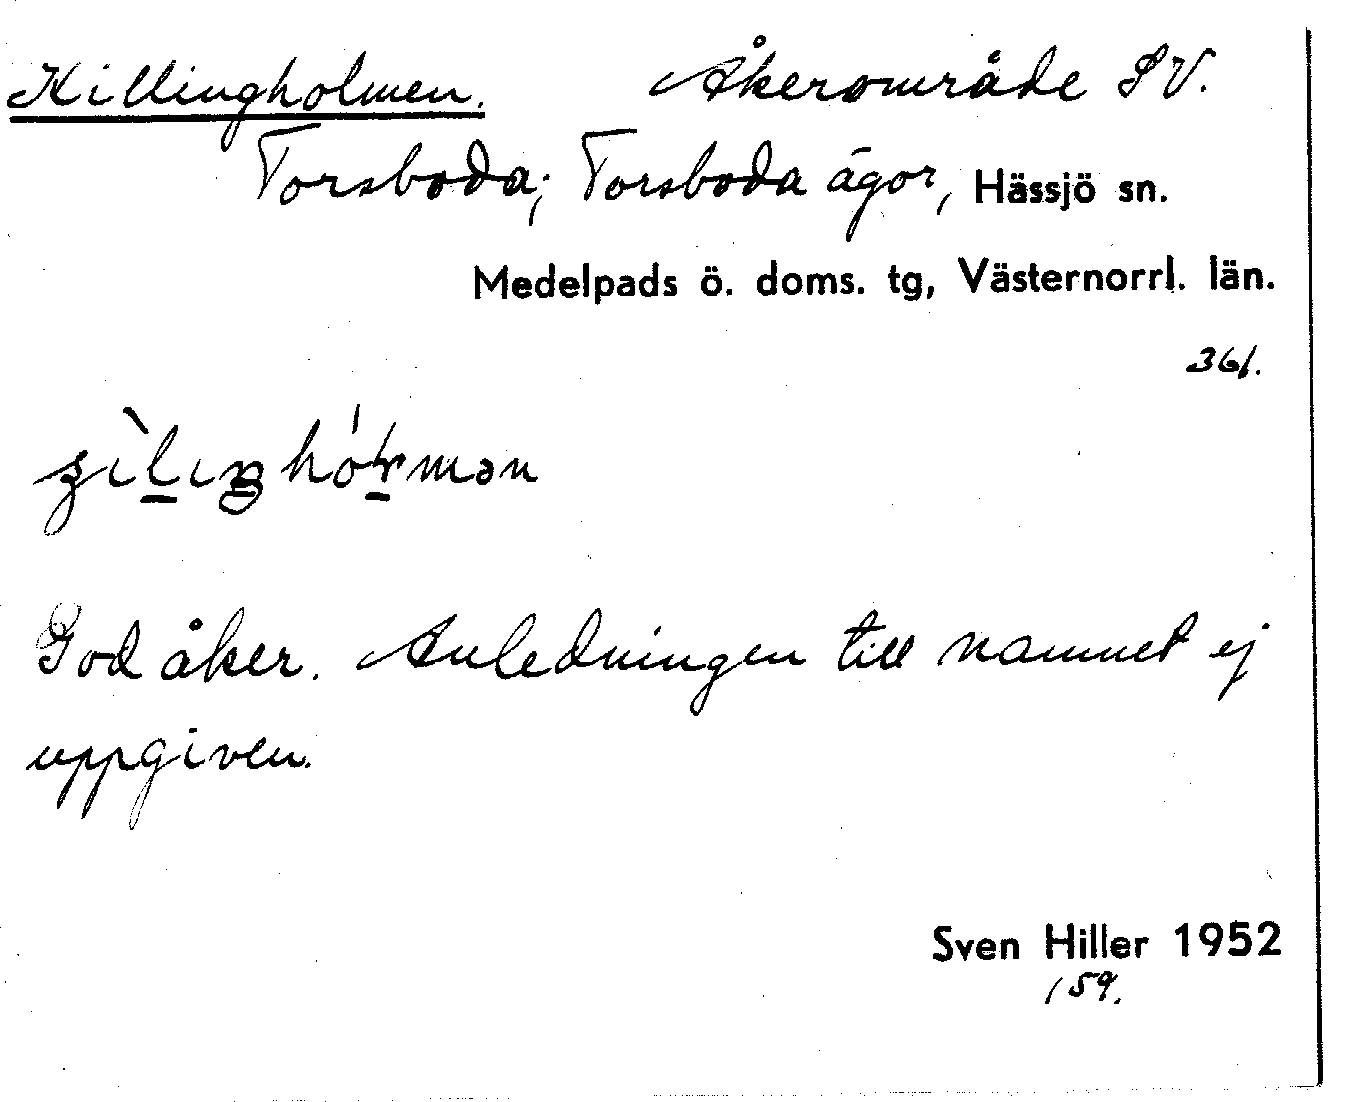 Killingholmen. Åkerområde SV.
Torsboda; Torsboda ägor, Hässjö sn.
Medelpads ö. doms. tg, Västernorrl. län.
361.
God åker. Anledningen till namnet ej
uppgiven.
Sven Hiller 1952
159.